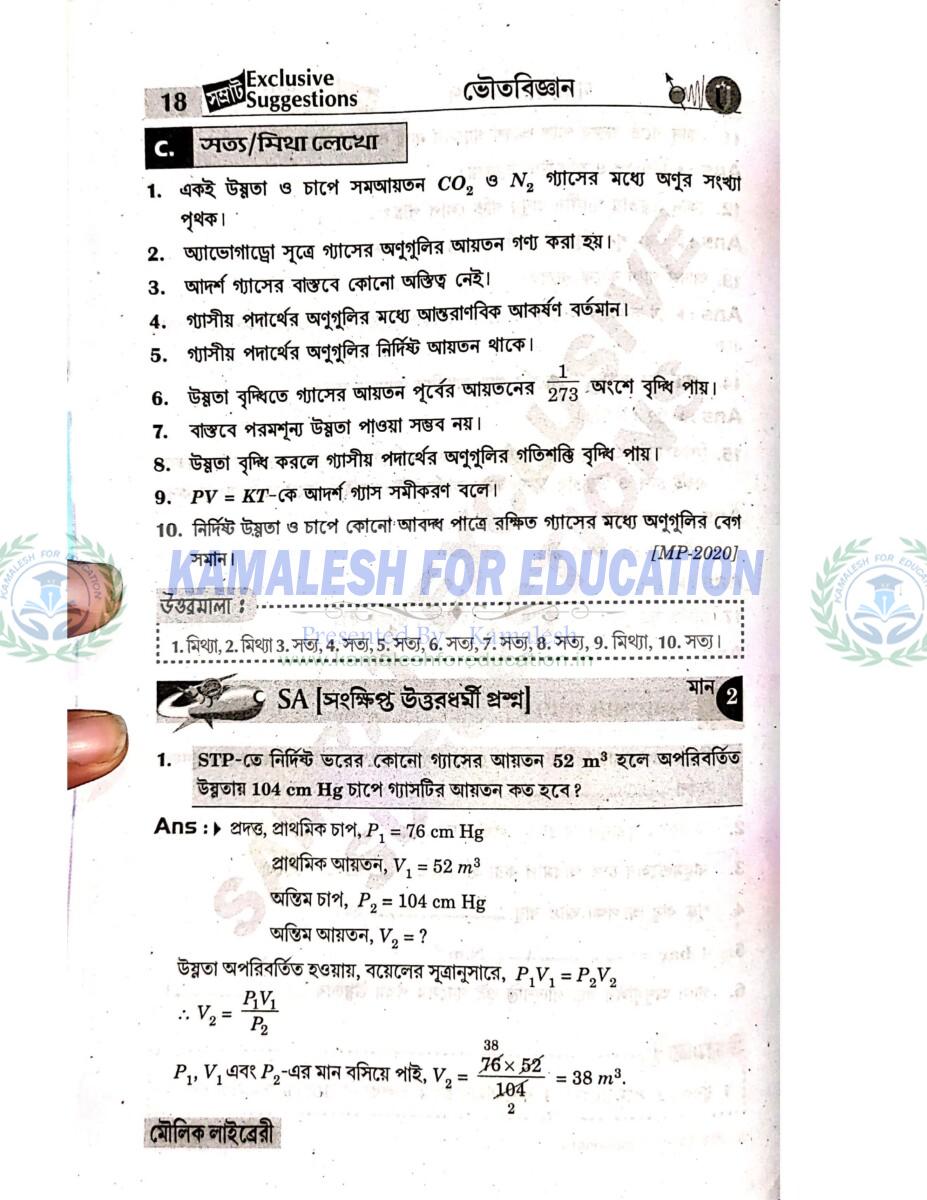 18 সম্রাট Exclusive Suggestions ভৌতবিজ্ঞান
C. সত্য/মিথ্যা লেখো
1. একই উষ্ণতা ও চাপে সমআয়তন CO₂ ও N₂ গ্যাসের মধ্যে অণুর সংখ্যা
পৃথক।
2. অ্যাভোগাড্রো সূত্রে গ্যাসের অণুগুলির আয়তন গণ্য করা হয়।
3. আদর্শ গ্যাসের বাস্তবে কোনো অস্তিত্ব নেই।
4. গ্যাসীয় পদার্থের অণুগুলির মধ্যে আন্তরাণবিক আকর্ষণ বর্তমান।
5. গ্যাসীয় পদার্থের অণুগুলির নির্দিষ্ট আয়তন থাকে।
6. উষ্ণতা বৃদ্ধিতে গ্যাসের আয়তন পূর্বের আয়তনের 1/273 অংশে বৃদ্ধি পায়।
7. বাস্তবে পরমশূন্য উষ্ণতা পাওয়া সম্ভব নয়।
8. উষ্ণতা বৃদ্ধি করলে গ্যাসীয় পদার্থের অণুগুলির গতিশক্তি বৃদ্ধি পায়।
9. PV = KT-কে আদর্শ গ্যাস সমীকরণ বলে।
10. নির্দিষ্ট উষ্ণতা ও চাপে কোনো আবদ্ধ পাত্রে রক্ষিত গ্যাসের মধ্যে অণুগুলির বেগ
সমান। [MP-2020]
KAMALESH FOR EDUCATION
উত্তরমালা :
Presented By:- Kamalesh
1. মিথ্যা, 2. মিথ্যা 3. সত্য, 4. সত্য, 5. সত্য, 6. সত্য, 7. সত্য, 8. সত্য, 9. মিথ্যা, 10. সত্য।
www.kamaleshforeducation.in
SA [সংক্ষিপ্ত উত্তরধর্মী প্রশ্ন] মান 2
1. STP-তে নির্দিষ্ট ভরের কোনো গ্যাসের আয়তন 52 m³ হলে অপরিবর্তিত
উষ্ণতায় 104 cm Hg চাপে গ্যাসটির আয়তন কত হবে?
Ans : প্রদত্ত, প্রাথমিক চাপ, P₁ = 76 cm Hg
প্রাথমিক আয়তন, V₁ = 52 m³
অন্তিম চাপ, P₂ = 104 cm Hg
অন্তিম আয়তন, V₂ = ?
উষ্ণতা অপরিবর্তিত হওয়ায়, বয়েলের সূত্রানুসারে, P₁V₁ = P₂V₂
∴ V₂ = P₁V₁/P₂
38
P₁, V₁ এবং P₂-এর মান বসিয়ে পাই, V₂ = 76 × 52/104 = 38 m³.
2
মৌলিক লাইব্রেরী